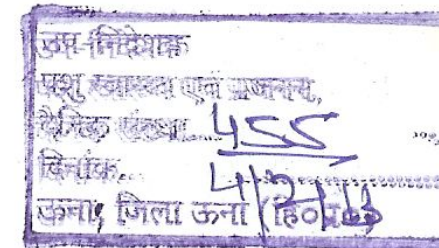 उप-निदेशक
पशु स्वास्थ्य एवं प्रजनन,
दैनिक संख्या 455
दिनांक
ऊना, जिला ऊना (हि०प्र०)